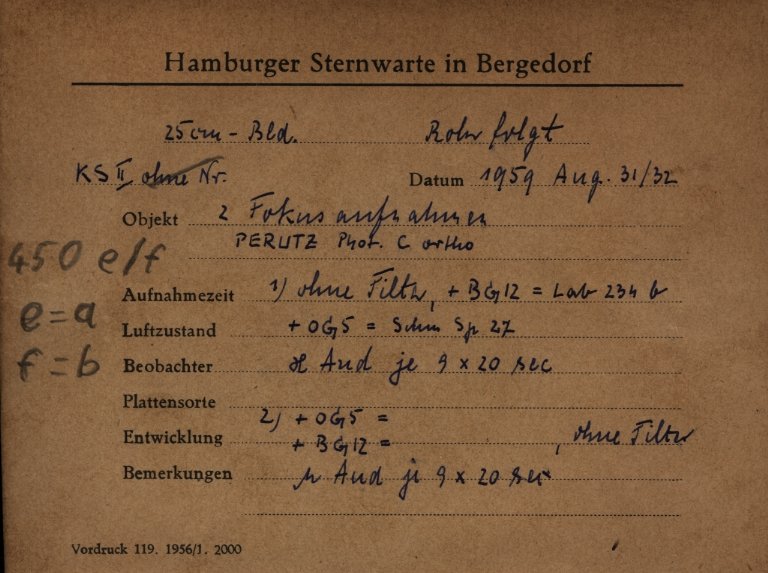 Hamburger Sternwarte in Bergedorf
25cm - Bld. Rohr folgt
KS II ohne Nr. Datum 1959 Aug. 31/32
Objekt 2 Fokusaufnahmen
PERUTZ Phot. C ortho
450 e/f
Aufnahmezeit 1) ohne Filter, + BG12 = Lab 234 b
e=a
Luftzustand + OG5 = Schm Sp 27
f=b
Beobachter α And je 9 x 20 sec
Plattensorte
2) + OG5 =
Entwicklung + BG12 = , ohne Filter
Bemerkungen And je 9 x 20 sec
Vordruck 119. 1956/1. 2000